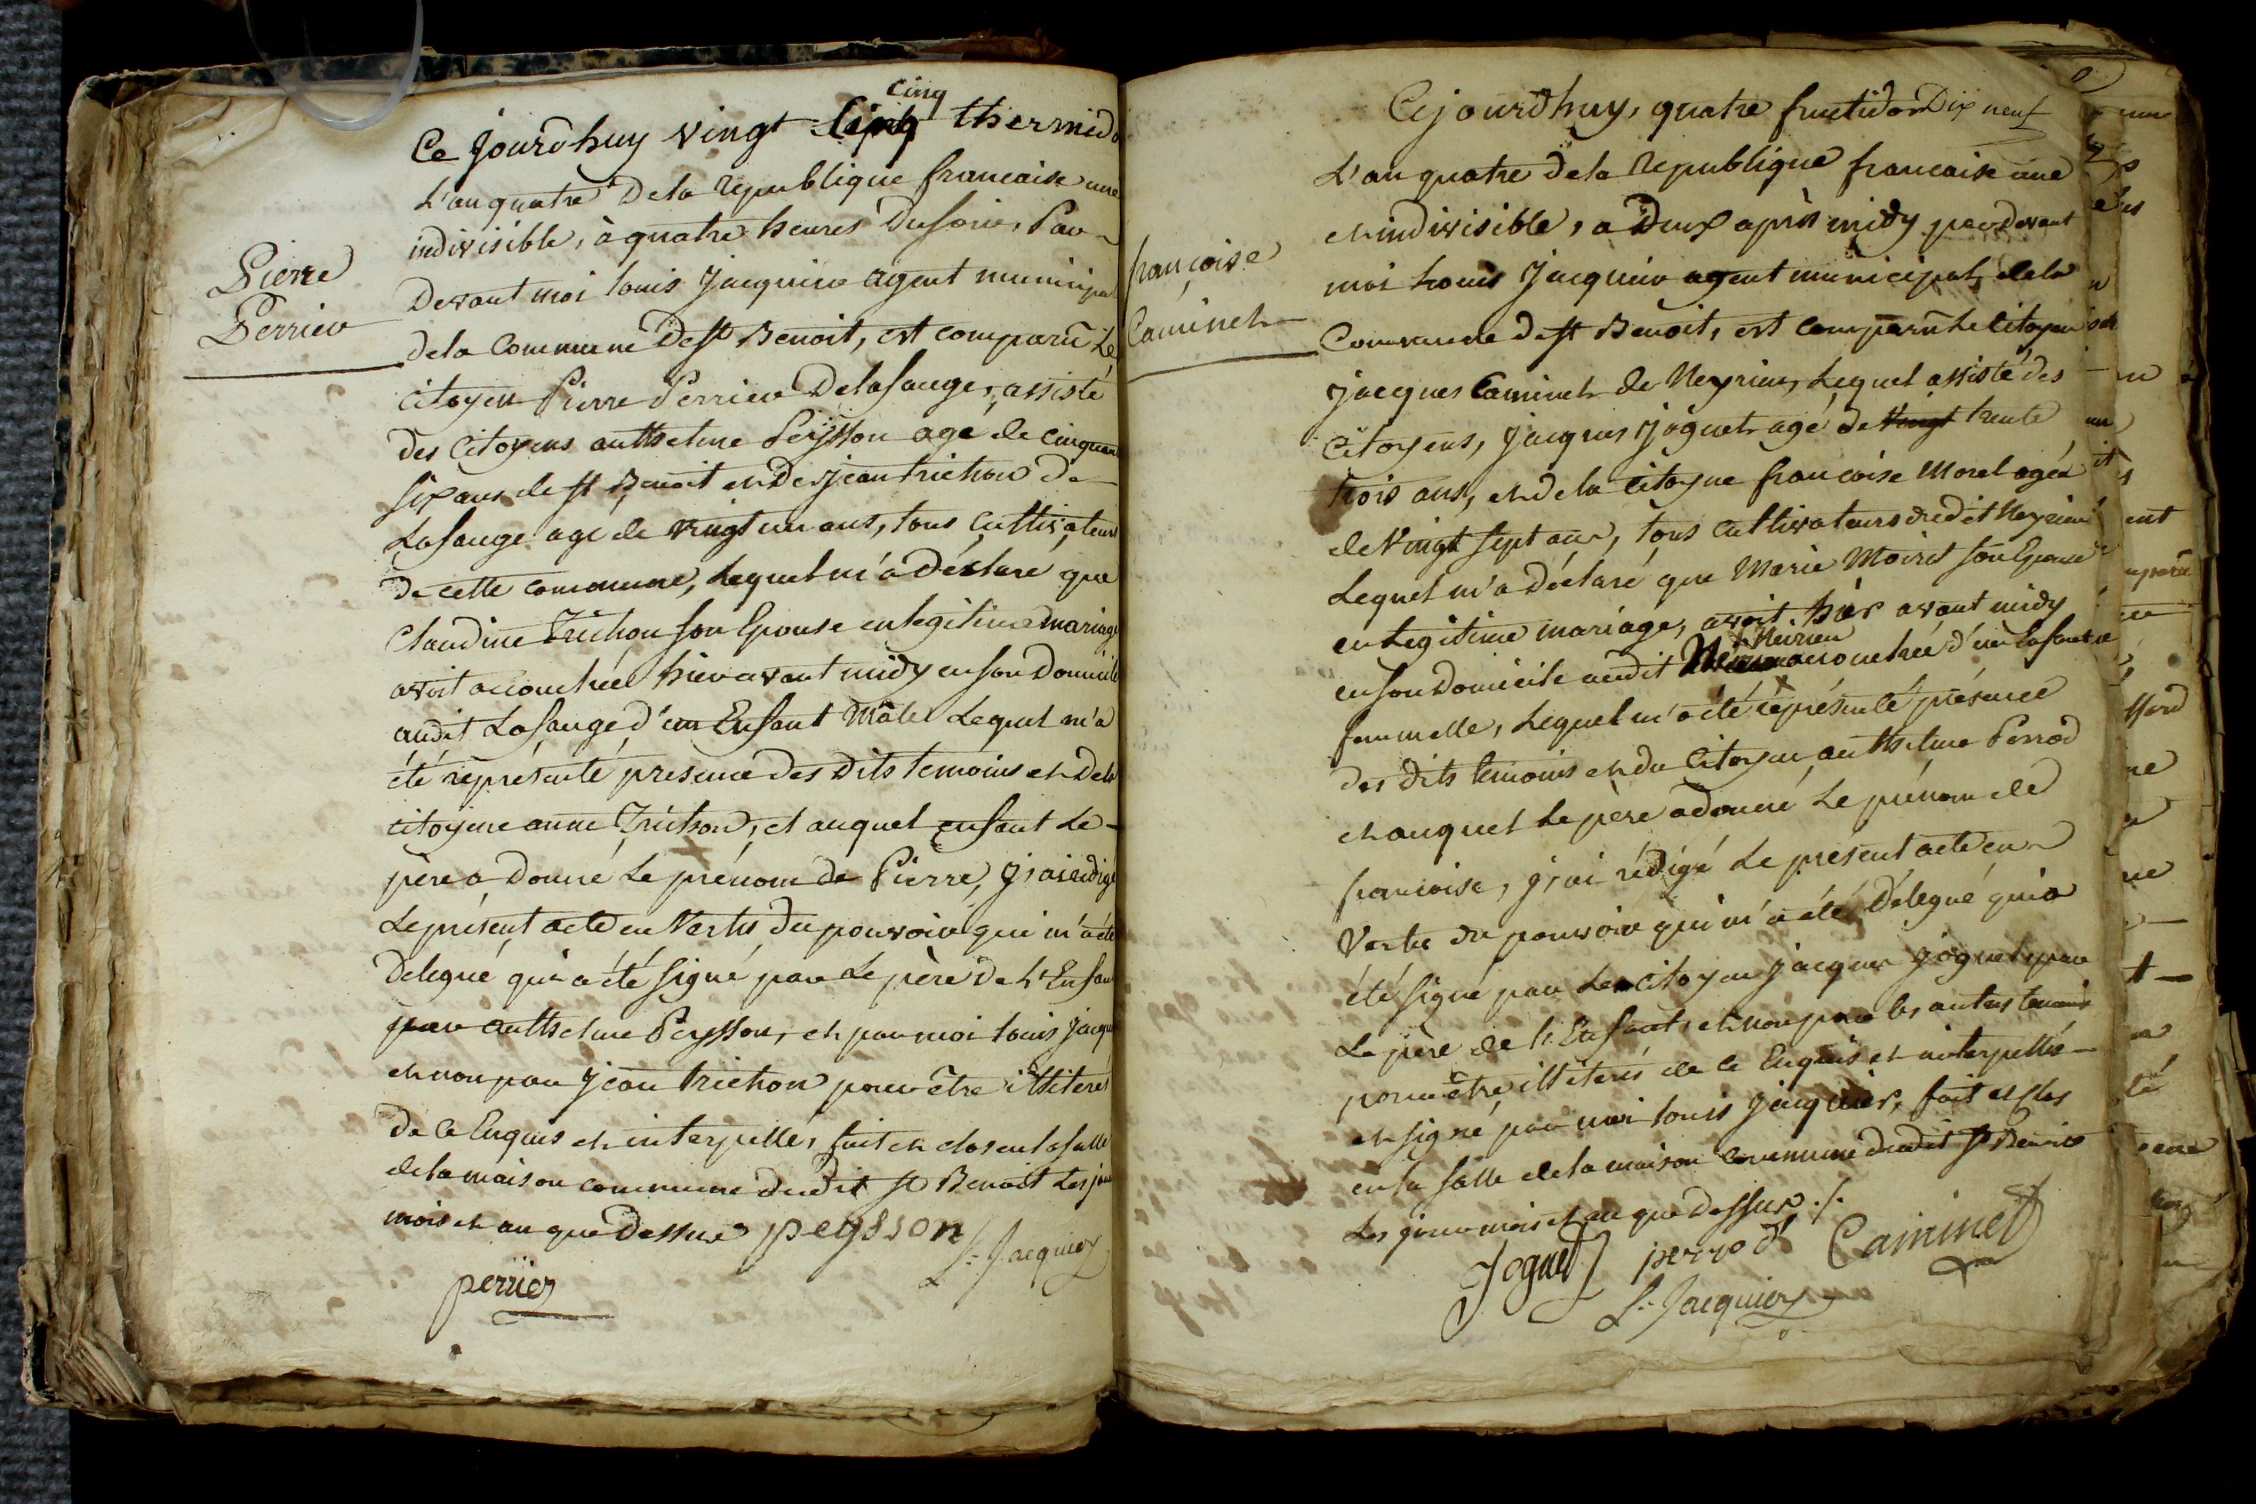 Pierre
Perrier
Ce jourdhuy vingt cinq thermido
L'an quatre de la republique francaise une
indivisible, à quatre heures du soir, Par
devant moi louis Jacquier agent municipal
de la Commune de st Benoit, est comparu Le
citoyen Pierre Perrier de la sauge, assisté
des citoyens anthelme Peysson agé de cinquante
six ans de st Benoit et de jean trichon de
Lasauge agé de vingt un ans, tous cultivateurs
de cette commune, Lequel m'a déclaré que
Claudine Trichon son Epouse en legitime mariage
avoit accouchée hier avant midy en son domicile
audit Lasauge d'un Enfant Mâle Lequel m'a
été représenté présence des dits temoins et de la
citoyene anne Trichon, et auquel enfant Le
père a donné Le prénom de Pierre, j'ai rédigé
Le présent acte en Vertu du pouvoir qui m'a été
délegué qui a été signé par Le père de L'Enfant
par anthelme Peysson, et par moi louis jacqu
et non par jean trichon pour être illiteré
de ce Enquis et interpellé, fait et clos en la salle
de la maison commune dudit st Benoit Les jour
mois et an que dessus peysson
L. Jacquier
perrier
françoise
Caminet
Cejourdhuy, quatre fructidor Dix neuf
L'an quatre de la republique francaise une
et indivisible, a deux après midy par devant
moi Louis Jacquier agent municipal de la
Commune de st Benoit, est comparu Le citoyen
jacques Caminet de Neyrieu, Lequel assisté des
citoyens, jacques joguet agé de vingt trente
trois ans, et de la citoyene francoise Morel agée
de vingt sept ans, tous cultivateurs dudit Neyrieu
Lequel m'a déclaré que Marie Moiret son Epouse
en Legitime mariage, avoit hier avant midy
Neirieu
en son domicile audit accouchée d'un Enfant
femmelle, Lequel m'a été représenté présence
des dits temoins et du citoyen anthelme Perrod
et auquel Le père a donné Le prénom de
francoise, j'ai rédigé Le present acte en
Vertu du pouvoir qui m'a été délegué qui a
été signé par Le citoyen jacques joguet par
Le père de L'Enfant, et non par les autres temoins
pour être illiterés de ce Enquis et interpellés
et signé par moi louis jacquier, fait et clos
en la salle de la maison commune dudit st Benoit
Les jour mois et an que dessus ./.
Joguet perrod Caminet
L. Jacquier